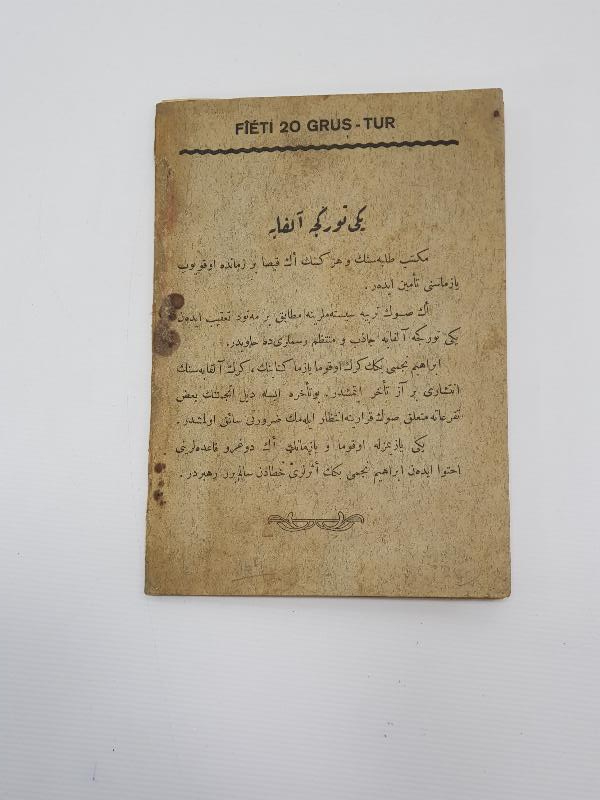 FÎÉTİ 20 GRUS - TUR
يكی تورکجه آلفابه
مکتب طلبه‌سنك و هر کسك اك قیصا بر زمانده اوقویوب
یازماسنی تأمین ایدەر .
اك صوك تربیه سیستەملرینه مطابق بر مەتود تعقیب ایدەن
یکی تورکجه آلفابه جاذب و منتظم رسملری ده حاویدر.
ابراهیم نجمی بکك کرك اوقوما یازما کتابنك ، کرك آلفابه‌سنك
انتشاری بر آز تأخر ایتمشدر. بو تأخره ایسه دیل انجمننك بعض
تفرعاته متعلق صوك قرارینه انتظار ایله‌مك ضرورتی سائق اولمشدر .
یکی یازیمزله اوقوما و یازمانك اك دوغرو قاعدەلرینی
احتوا ایدەن ابراهیم نجمی بکك اثرلری خطادن سالم برر رهبردر .